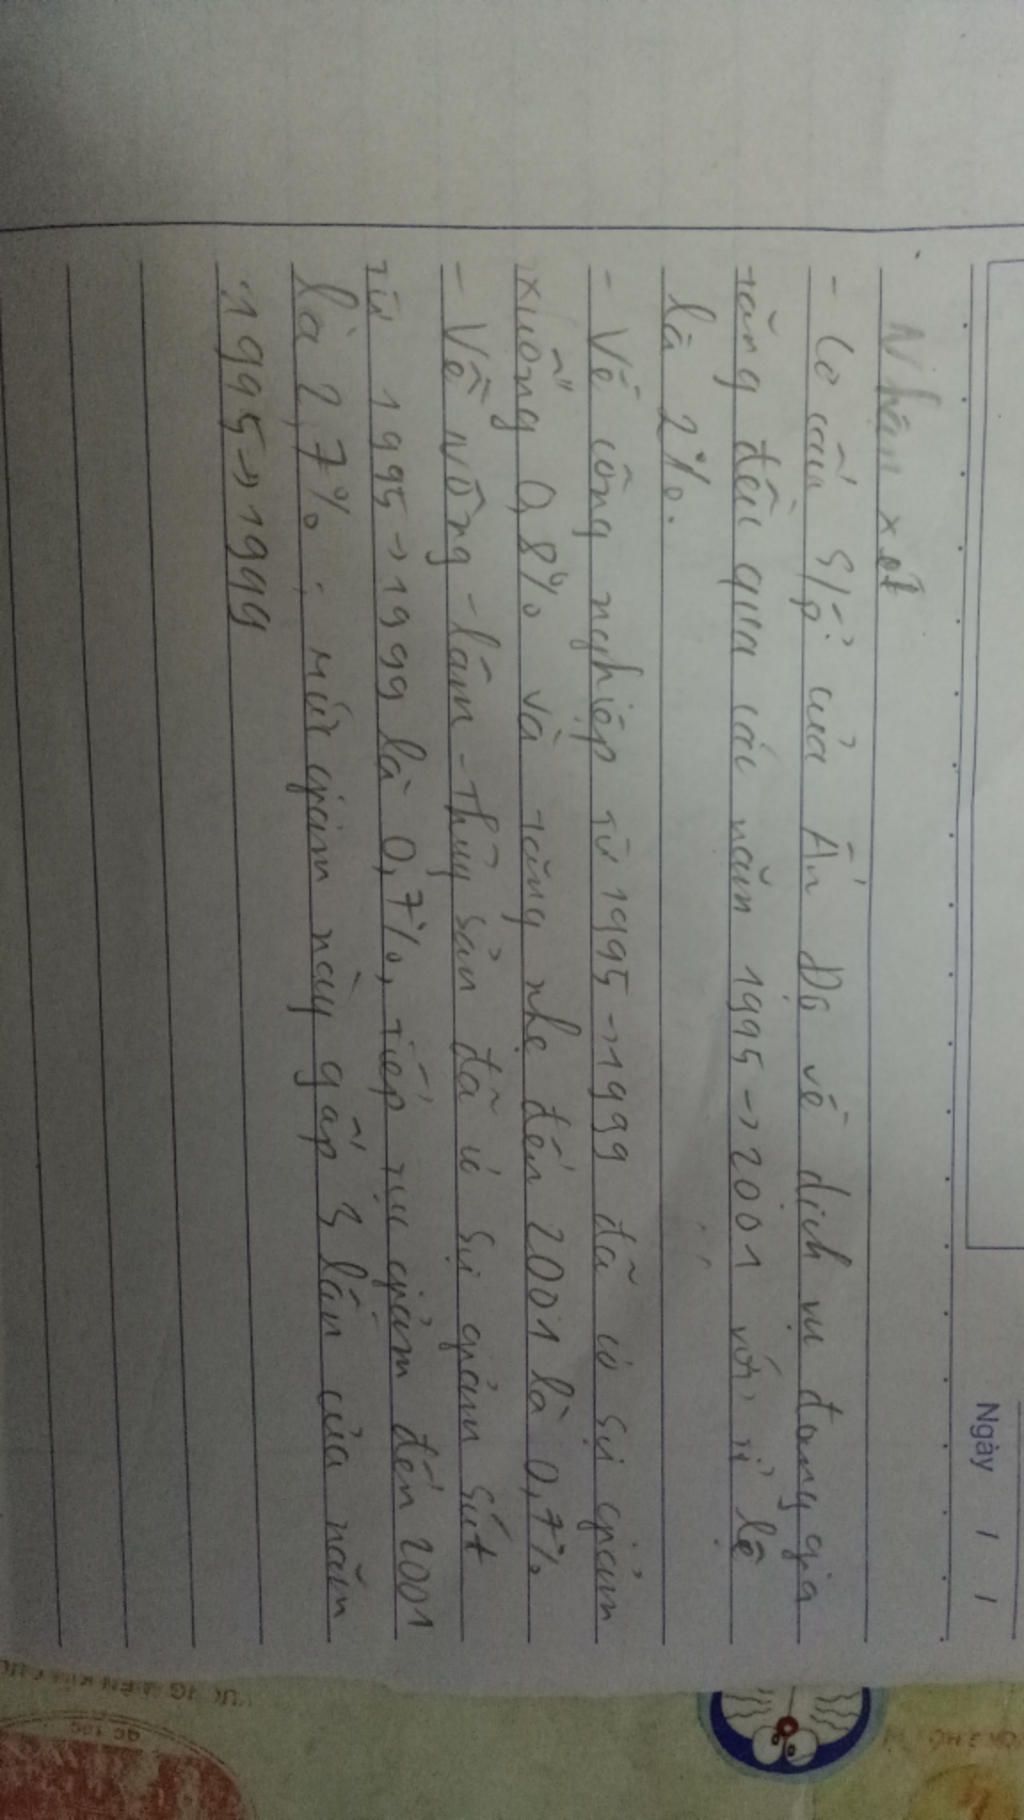 Ngày / /
Nhận xét
- Cơ cấu S/p của Ấn Độ về dịch vụ đang gia
tăng đều qua các năm 1995→2001 với tỉ lệ
là 2%.
- Về công nghiệp từ 1995→1999 đã có sự giảm
xuống 0,8% và tăng nhẹ đến 2001 là 0,7%
- Về nông - lâm - thủy sản đã có sự giảm sút
từ 1995→1999 là 0,7%, tiếp tục giảm đến 2001
là 2,7% ; mức giảm này gấp 3 lần của năm
1995→1999